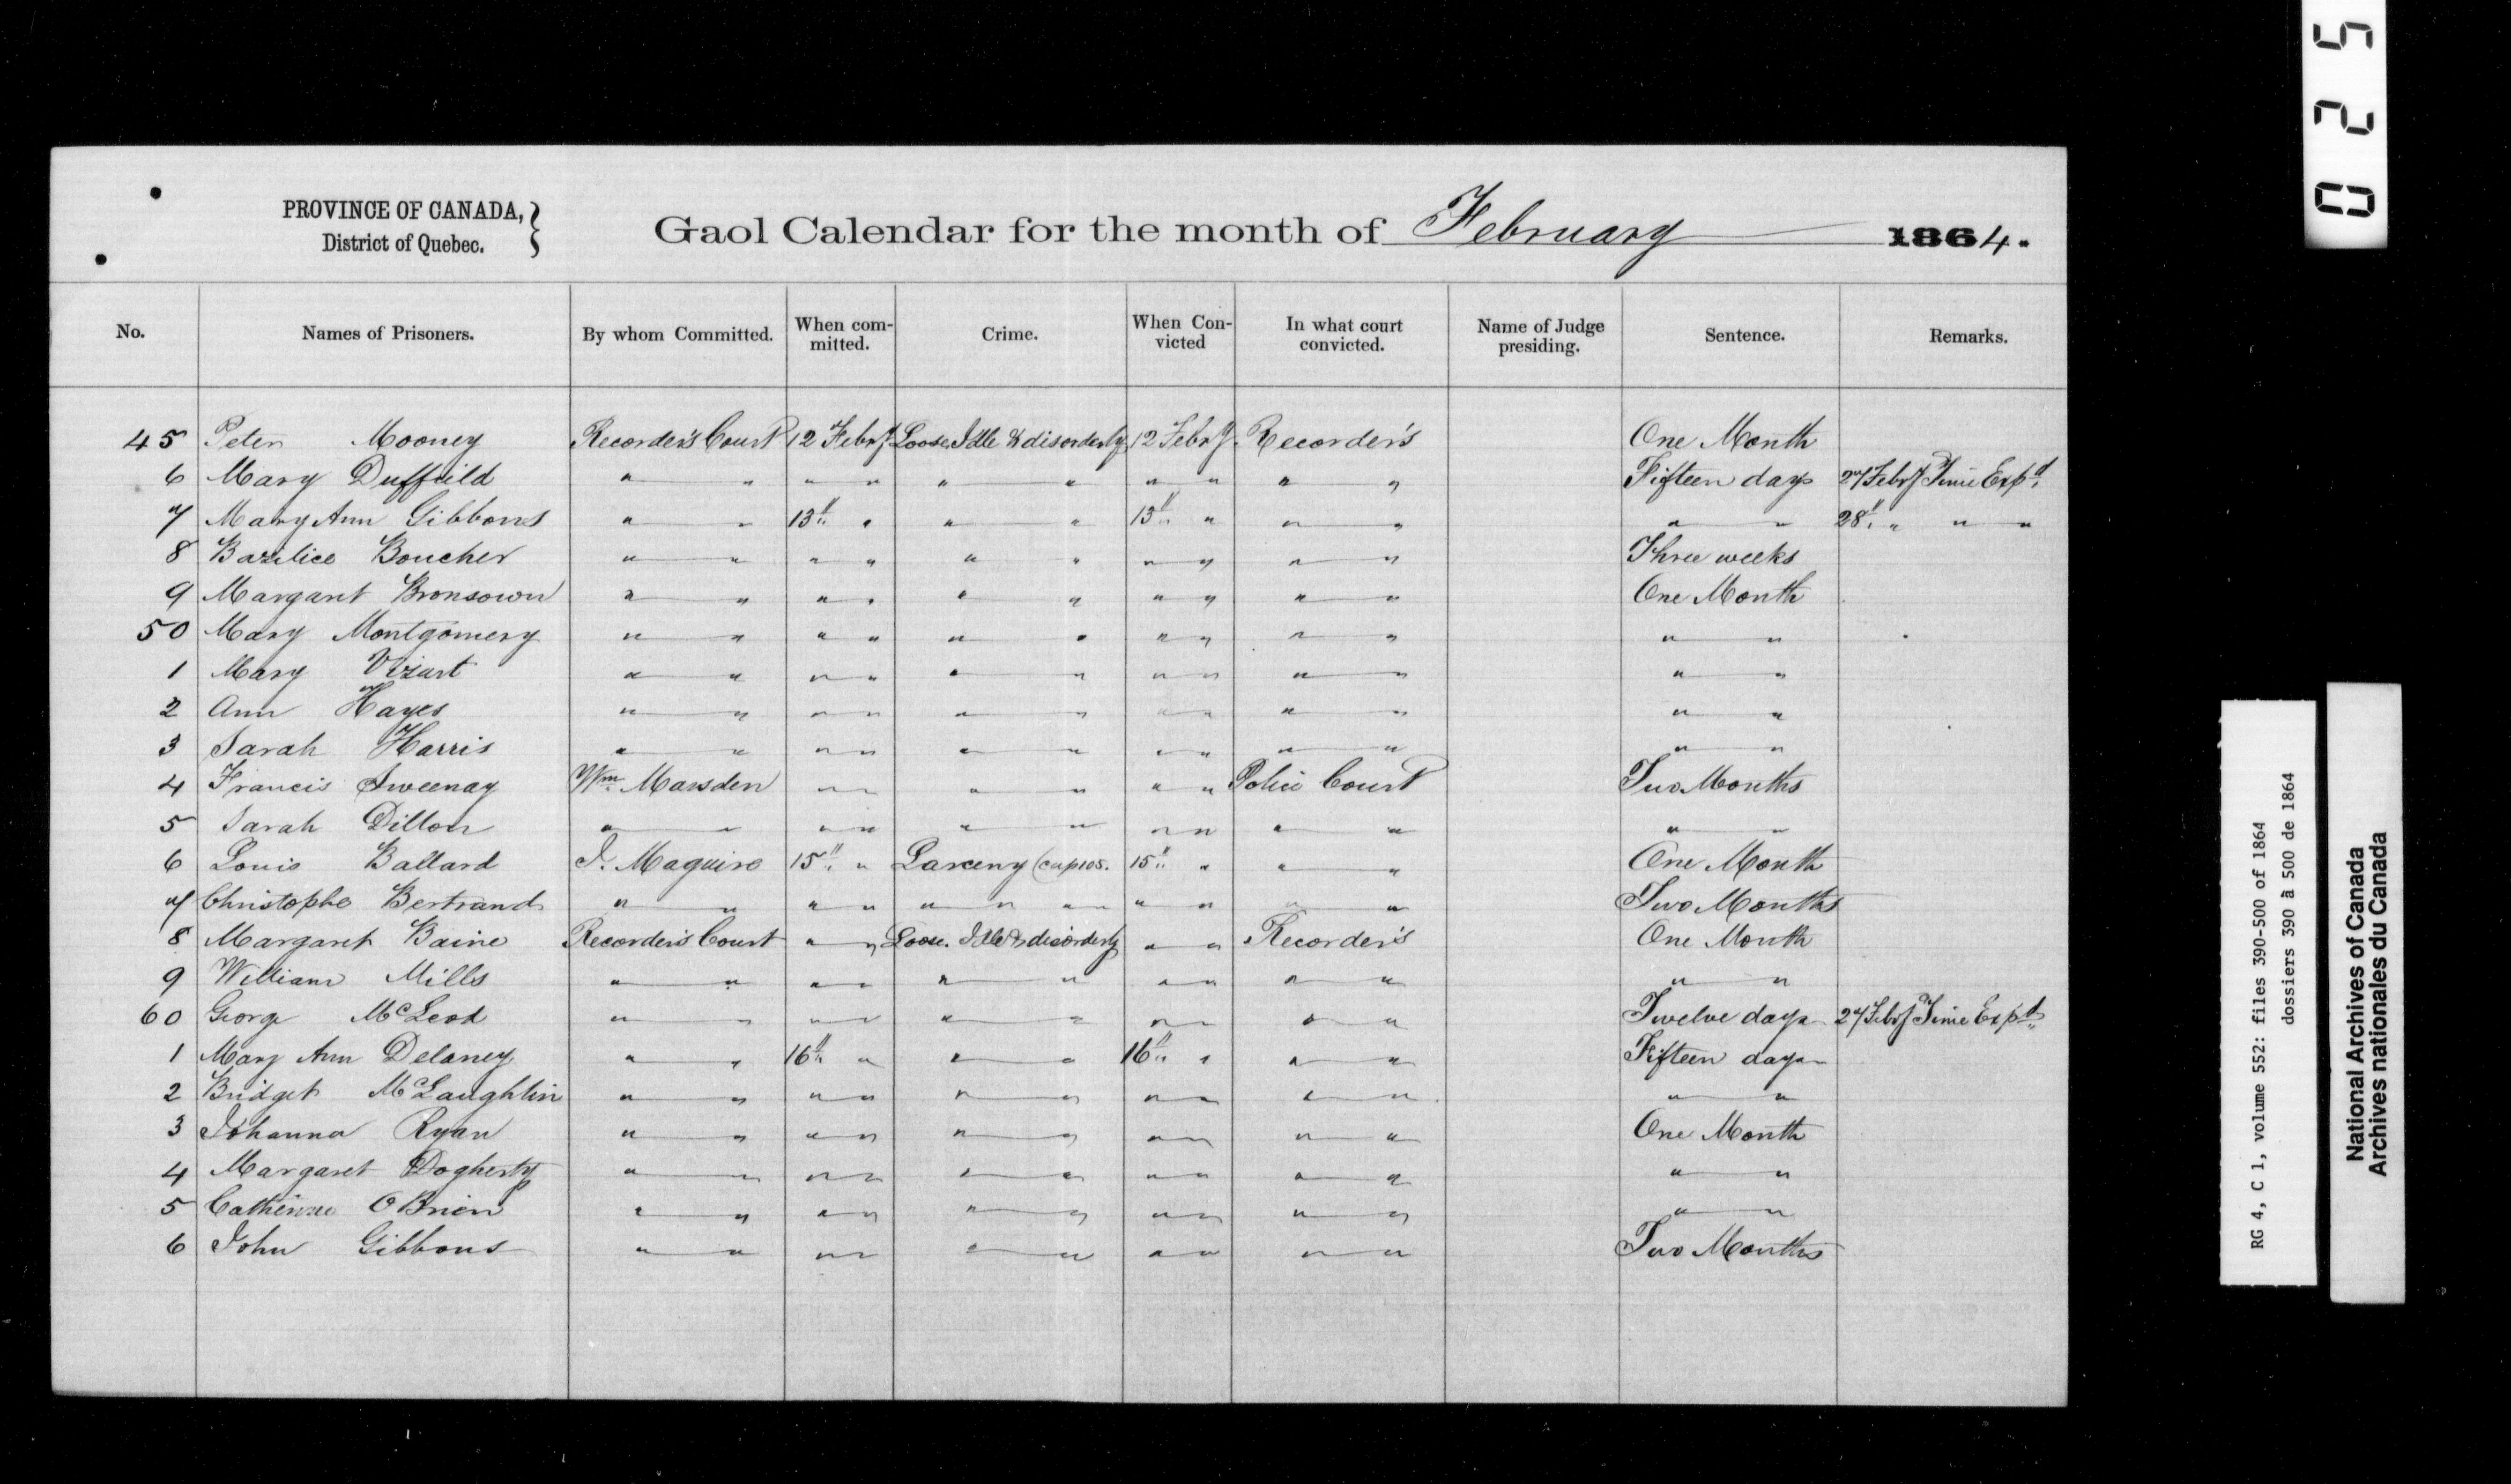 0 2 5
PROVINCE OF CANADA,
District of Quebec.
Gaol Calendar for the month of February 1864.
No. Names of Prisoners. By whom Committed. When com-mitted. Crime. When Con-victed In what court convicted. Name of Judge presiding. Sentence. Remarks.
45 Peter Mooney Recorder's Court 12 Febry Loose, Idle & disorderly 12 Febry. Recorder's One Month
6 Mary Duffeild " " " " " " " " " " Fifteen days 27 Febry Time Expd.
7 Mary Ann Gibbons " " 13th " " " 13th " " " " " 28th " " "
8 Bazilice Boucher " " " " " " " " " " Three weeks
9 Margaret Bronsown " " " " " " " " " " One Month
50 Mary Montgomery " " " " " " " " " " " "
1 Mary Vizart " " " " " " " " " " " "
2 Ann Hayes " " " " " " " " " " " "
3 Sarah Harris " " " " " " " " " " " "
4 Francis Sweenay Wm. Marsden " " " " " " Police Court Two Months
5 Sarah Dillon " " " " " " " " " " " "
6 Louis Ballard J. Maguire 15th " Larceny (cap 105. 15th " " " One Month
7 Christophe Bertrand " " " " " " " " " " " " Two Months
8 Margaret Baine Recorder's Court " " Loose. Idle & disorderly " " Recorder's One Month
9 William Mills " " " " " " " " " " " "
60 George McLeod " " " " " " " " " " Twelve days 27 Febry Time Expd.
1 Mary Ann Delaney " " 16th " " " 16th " " " Fifteen days
2 Bridget McLaughlin " " " " " " " " " " " "
3 Johanna Ryan " " " " " " " " " " One Month
4 Margaret Dogherty " " " " " " " " " " " "
5 Catherine OBrien " " " " " " " " " " " "
6 John Gibbons " " " " " " " " " " Two Months
RG 4, C 1, volume 552: files 390-500 of 1864
dossiers 390 à 500 de 1864
National Archives of Canada
Archives nationales du Canada